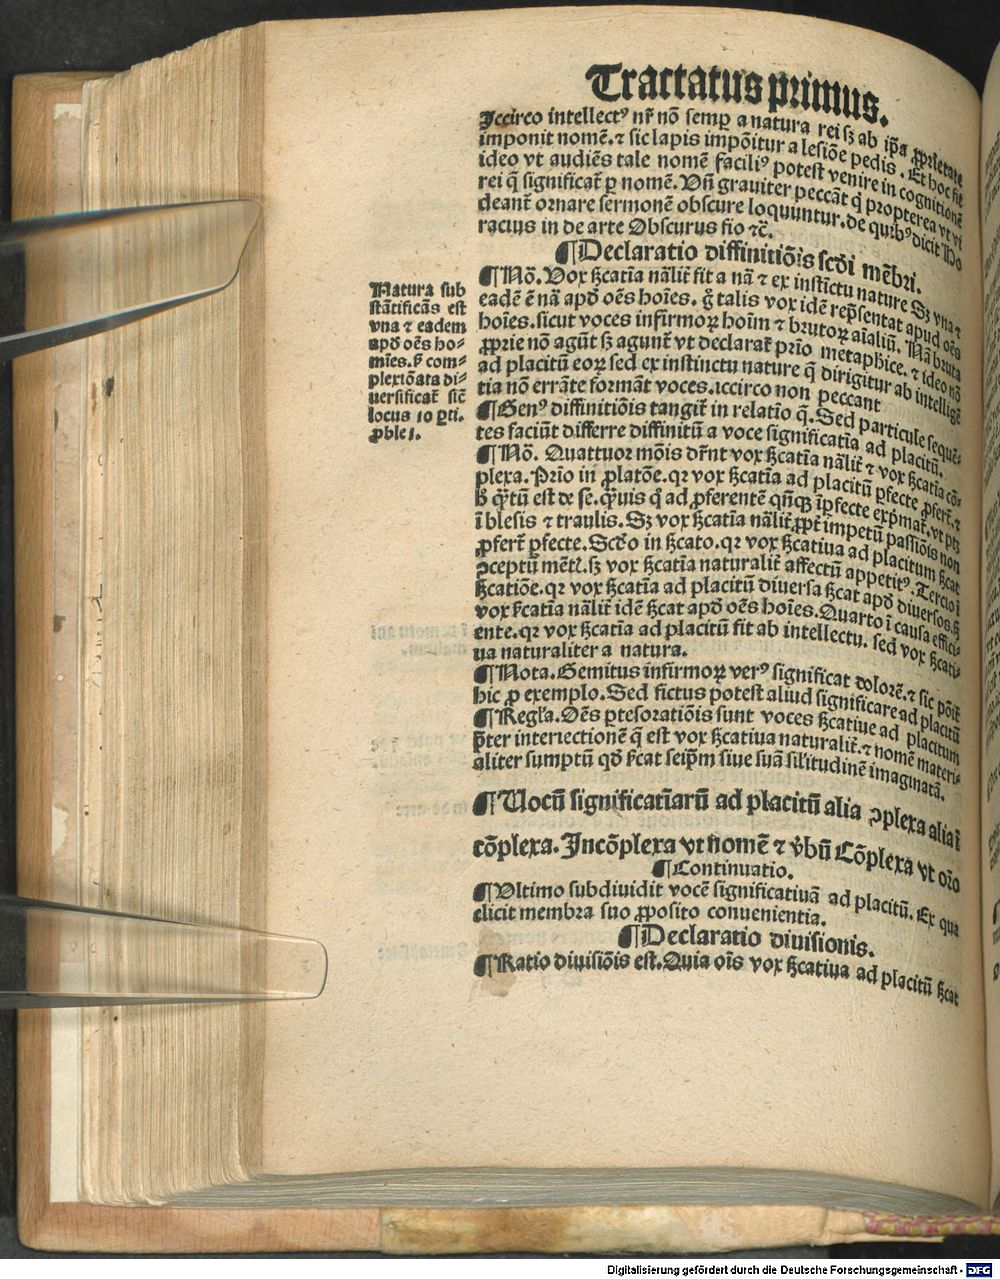 Tractatus primus.
Iccirco intellectꝰ nr̄ nō semꝑ a natura rei sꝫ ab ip̄a ꝓprietate
imponit nomē. ⁊ sic lapis impōitur a lesiōe pedis. Et hoc fit
ideo vt audiēs tale nomē faciliꝰ potest venire in cognitionē
rei q̄ significat̄ ꝑ nomē. Vn̄ grauiter peccāt q̄ propterea vt vi
deant̄ ornare sermonē obscure loquuntur. de quibꝰ dicit Ho
racius in de arte Obscurus fio ⁊c̄.
¶Declaratio diffinitiōis scd̄i mēbri.
¶Nō. Vox ſſcatīa nālit̄ fit a nā ⁊ ex instīctu nature Sꝫ vna ⁊
eadē ē nā apd̄ oēs hoīes. g̊ talis vox idē rep̄sentat apud oēs
hoīes. sicut voces infirmoꝝ hoīm ⁊ brutoꝝ aīaliū. Nā bruta
ꝓprie nō agūt sꝫ agunt̄ vt declarat̄ prīo metaphice. ⁊ ideo nō
ad placitū eoꝝ sed ex instinctu nature q̄ dirigitur ab intelligē
tia nō errāte formāt voces. iccirco non peccant
¶Genꝰ diffinitiōis tangit̄ in relatīo q̄. Sed particule sequē-
tes faciūt differre diffinitū a voce significatīa ad placitū.
¶Nō. Quattuor mōis dr̄nt vox ſſcatīa nālit̄ ⁊ vox ſſcatīa cō-
plexa. Prīo in ꝓlatōe. qꝛ vox ſſcatīa ad placitū ꝑfecte ꝓfert̄. ⁊
h̄ qʳtū est de se. qʳuis q̄ ad ꝓferentē qn̄qꝫ īꝑfecte exp̄mat̄. vt ptꝫ
ī blesis ⁊ traulis. Sꝫ vox ſſcatīa nālit̄ ꝓpt̄ impetū passiōis non
ꝓfert̄ ꝑfecte. Scd̄o in ſſcato. qꝛ vox ſſcatiua ad placitum ſſcat
ꝯceptū mēt̄. sꝫ vox ſſcatīa naturalit̄ affectū appetitꝰ. Tercio ī
ſſcatiōe. qꝛ vox ſſcatīa ad placitū diuersa ſſcat apd̄ diuersos. sꝫ
vox ſſcatīa nālit̄ idē ſſcat apd̄ oēs hoīes. Quarto ī causa effici-
ente. qꝛ vox ſſcatīa ad placitū fit ab intellectu. sed vox ſſcati-
ua naturaliter a natura.
¶Nota. Gemitus infirmoꝝ verꝰ significat dolorē. ⁊ sic pōit̄
hic ꝓ exemplo. Sed fictus potest aliud significare ad placitū
¶Regl̄a. Oēs ꝑtes oratiōis sunt voces ſſcatiue ad placitum
p̄ter interiectionē q̄ est vox ſſcatiua naturalit̄. ⁊ nomē materi-
aliter sumptū qd̄ ſſcat seip̄m siue suā sil̄itudinē imaginatā.
¶Vocū significatīarū ad placitū alia ꝯplexa alia ī
cōplexa. Incōplexa vt nomē ⁊ v̄bū Cōplexa vt oro
¶Continuatio.
¶Vltimo subdiuidit vocē significatiuā ad placitū. Ex qua
elicit membra suo ꝓposito conuenientia.
¶Declaratio diuisionis.
¶Ratio diuisiōis est. Quia oīs vox ſſcatiua ad placitū ſſcat
Natura sub
stātificās est
vna ⁊ eadem
apd̄ oēs ho-
mīes. s̄ com-
plexiōata di-
uersificat̄ sic̄
locus 10 ꝑti.
ꝓble 1.
Digitalisierung gefördert durch die Deutsche Forschungsgemeinschaft - DFG